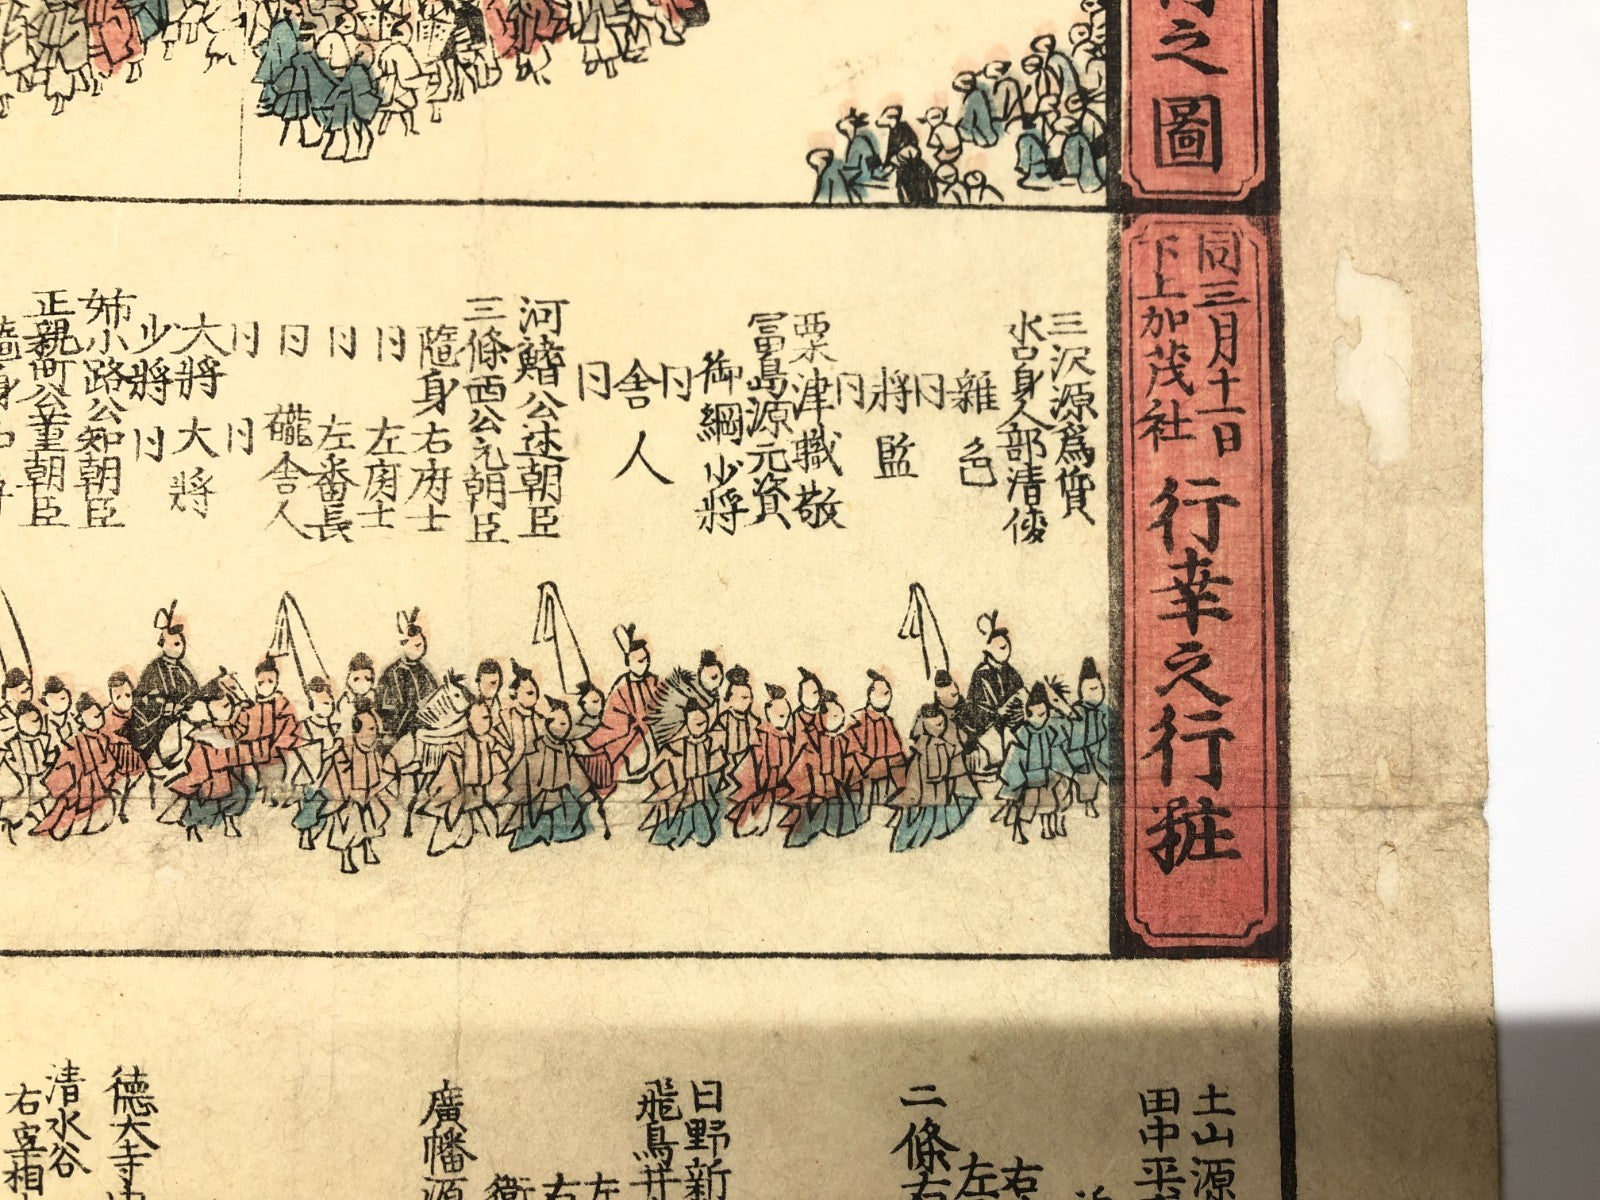 之圖
同三月十一日
下上加茂社
行幸之行粧
三沢源為質
水口身人部清俊
雜色
仝
將監
仝
粟津職敬
冨島源元資
御綱少將
仝
舍人
仝
河鰭公述朝臣
三條西公允朝臣
隨身右府士
仝 左府士
仝 左番長
仝 䮾舍人
仝 仝
大將 大將
少將 仝
姉小路公知朝臣
正親町公董朝臣
隨身
土山源
田中平
右
左
二條右
日野新
飛鳥井
左
右
衛
廣幡源
德大寺
清水谷
右宰相